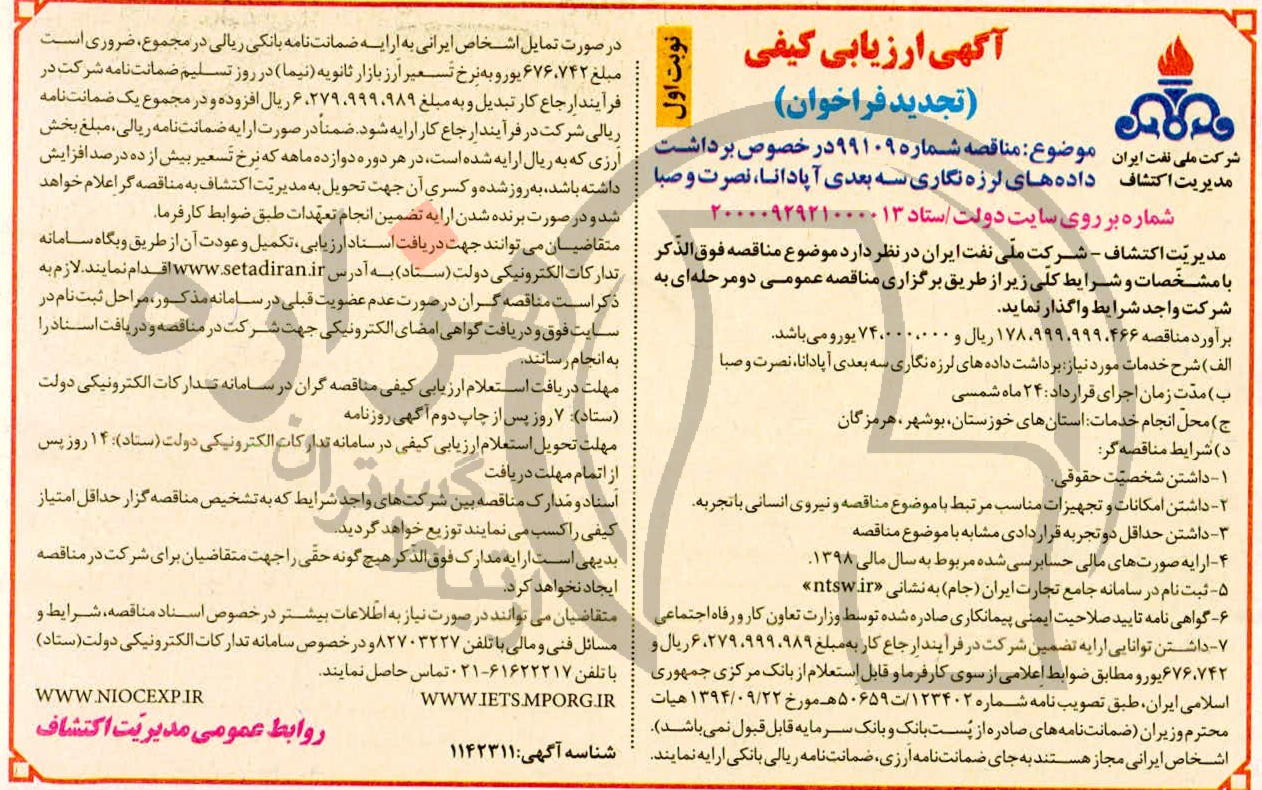 آگهی ارزیابی کیفی
(تجدید فراخوان)
نوبت اول
شرکت ملی نفت ایران
مدیریت اکتشاف
موضوع: مناقصه شماره ۹۹۱۰۹ در خصوص برداشت
داده‌های لرزه نگاری سه بعدی آپادانا، نصرت و صبا
شماره بر روی سایت دولت /ستاد ۲۰۰۰۰۹۲۹۲۱۰۰۰۰۱۳
مدیریّت اکتشاف – شرکت ملّی نفت ایران در نظر دارد موضوع مناقصه فوق‌الذّکر
با مشخّصات و شرایط کلّی زیر از طریق برگزاری مناقصه عمومی دو مرحله‌ای به
شرکت واجد شرایط واگذار نماید.
برآورد مناقصه ۱۷۸،۹۹۹،۹۹۹،۴۶۶ ریال و ۷۴،۰۰۰،۰۰۰ یورو می‌باشد.
الف) شرح خدمات مورد نیاز: برداشت داده های لرزه نگاری سه بعدی آپادانا، نصرت و صبا
ب) مدّت زمان اجرای قرارداد: ۲۴ ماه شمسی
ج) محلّ انجام خدمات: استان های خوزستان، بوشهر، هرمزگان
د) شرایط مناقصه‌گر:
۱-داشتن شخصیّت حقوقی.
۲-داشتن امکانات و تجهیزات مناسب مرتبط با موضوع مناقصه و نیروی انسانی با تجربه.
۳-داشتن حداقل دو تجربه قراردادی مشابه با موضوع مناقصه
۴-ارایه صورت‌های مالی حسابرسی شده مربوط به سال مالی ۱۳۹۸.
۵- ثبت نام در سامانه جامع تجارت ایران (جام) به نشانی «ntsw.ir»
۶-گواهی نامه تایید صلاحیت ایمنی پیمانکاری صادره شده توسط وزارت تعاون کار و رفاه اجتماعی
۷-داشتن توانایی ارایه تضمین شرکت در فرآیند ارجاع کار به مبلغ ۶،۲۷۹،۹۹۹،۹۸۹ ریال و
۶۷۶،۷۴۲ یورو مطابق ضوابط اعلامی از سوی کارفرما و قابل استعلام از بانک مرکزی جمهوری
اسلامی ایران، طبق تصویب نامه شماره ۱۲۳۴۰۲/ت۵۰۶۵۹هـ مورخ ۱۳۹۴/۰۹/۲۲ هیات
محترم وزیران (ضمانت‌نامه‌های صادره از پُست‌بانک و بانک سرمایه قابل قبول نمی‌باشد).
اشخاص ایرانی مجاز هستند به جای ضمانت‌نامه ارزی، ضمانت‌نامه ریالی بانکی ارایه نمایند.
در صورت تمایل اشخاص ایرانی به ارایه ضمانت‌نامه بانکی ریالی در مجموع، ضروری است
مبلغ ۶۷۶،۷۴۲ یورو به نرخ تسعیر ارز بازار ثانویه (نیما) در روز تسلیم ضمانت‌نامه شرکت در
فرآیند ارجاع کار تبدیل و به مبلغ ۶،۲۷۹،۹۹۹،۹۸۹ ریال افزوده و در مجموع یک ضمانت‌نامه
ریالی شرکت در فرآیند ارجاع کار ارایه شود. ضمناً در صورت ارایه ضمانت‌نامه ریالی، مبلغ بخش
ارزی که به ریال ارایه شده است، در هر دوره دوازده ماهه که نرخ تسعیر بیش از ده درصد افزایش
داشته باشد، به‌روز شده و کسری آن جهت تحویل به مدیریّت اکتشاف به مناقصه گر اعلام خواهد
شد و در صورت برنده شدن ارایه تضمین انجام تعهّدات طبق ضوابط کارفرما.
متقاضیان می توانند جهت دریافت اسناد ارزیابی، تکمیل و عودت آن از طریق وبگاه سامانه
تدارکات الکترونیکی دولت (ستاد) به آدرس www.setadiran.ir اقدام نمایند. لازم به
ذکر است مناقصه گران در صورت عدم عضویت قبلی در سامانه مذکور، مراحل ثبت نام در
سایت فوق و دریافت گواهی امضای الکترونیکی جهت شرکت در مناقصه و دریافت اسناد را
به انجام رسانند.
مهلت دریافت استعلام ارزیابی کیفی مناقصه گران در سامانه تدارکات الکترونیکی دولت
(ستاد): ۷ روز پس از چاپ دوم آگهی روزنامه
مهلت تحویل استعلام ارزیابی کیفی در سامانه تدارکات الکترونیکی دولت (ستاد): ۱۴ روز پس
از اتمام مهلت دریافت
اسناد و مدارک مناقصه بین شرکت‌های واجد شرایط که به تشخیص مناقصه گزار حداقل امتیاز
کیفی را کسب می نمایند توزیع خواهد گردید.
بدیهی است ارایه مدارک فوق‌الذّکر هیچ گونه حقّی را جهت متقاضیان برای شرکت در مناقصه
ایجاد نخواهد کرد.
متقاضیان می توانند در صورت نیاز به اطّلاعات بیشتر در خصوص اسناد مناقصه، شرایط و
مسائل فنی و مالی با تلفن ۸۲۷۰۳۲۲۷ و در خصوص سامانه تدارکات الکترونیکی دولت (ستاد)
با تلفن ۶۱۶۲۲۲۱۷-۰۲۱ تماس حاصل نمایند.
WWW.IETS.MPORG.IR WWW.NIOCEXP.IR
روابط عمومی مدیریّت اکتشاف
شناسه آگهی: ۱۱۴۲۳۱۱
هزاره
گستران
ارتباط